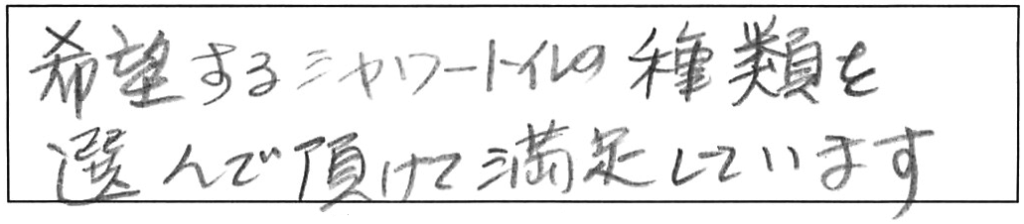 希望するシャワートイレの種類を
選んで頂けて満足しています